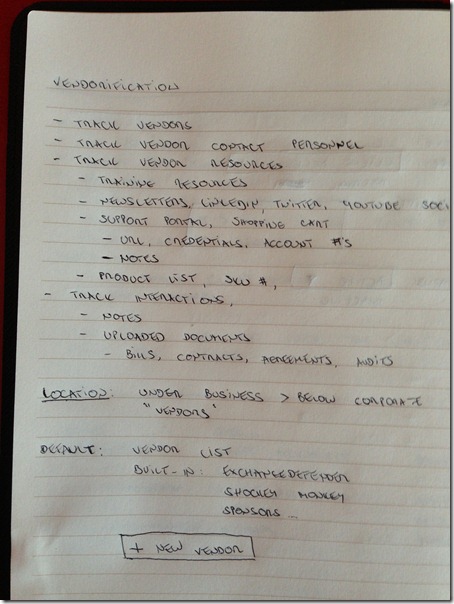 VENDORIFICATION
- TRACK VENDORS
- TRACK VENDOR CONTACT PERSONNEL
- TRACK VENDOR RESOURCES
- TRAINING RESOURCES
- NEWSLETTERS, LINKEDIN, TWITTER, YOUTUBE SOCI
- SUPPORT PORTAL, SHOPPING CART
- URL, CREDENTIALS, ACCOUNT #'S
- NOTES
- PRODUCT LIST, SKU #,
- TRACK INTERACTIONS,
- NOTES
- UPLOADED DOCUMENTS
- BILLS, CONTRACTS, AGREEMENTS, AUDITS
LOCATION: UNDER BUSINESS > BELOW CORPORATE
"VENDORS"
DEFAULT: VENDOR LIST
BUILT-IN: EXCHANGEDEFENDER
SHOCKEY MONKEY
SPONSORS...
+ NEW VENDOR